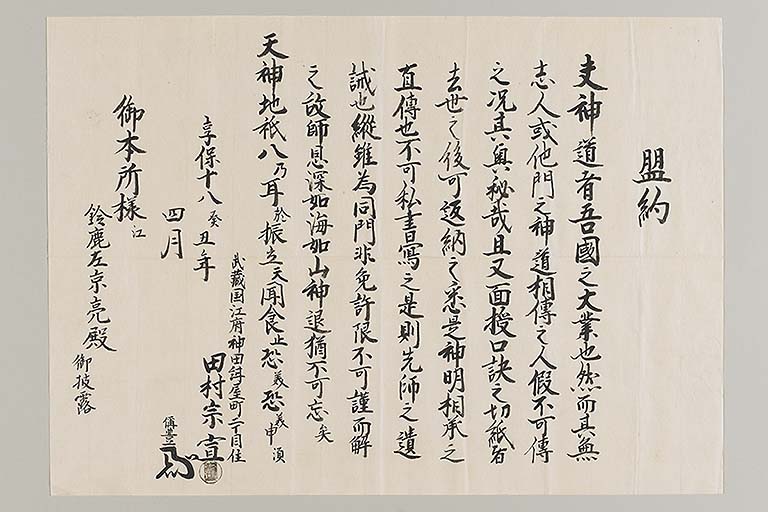 盟約
夫神道者吾國之大業也然而其無
志人或他門之神道相傳之人假不可傳
之况其奥秘哉且又面授口訣之切紙者
去世之後可返納之悉是神明相承之
直傳也不可私書寫之是則先師之遺
誡也縱雖為同門非免許限不可謹而解
之故師恩深如海如山神退猶不可忘矣
天神地祇八乃耳於振立天聞食止恐美恐美申須
武蔵国江府神田鍋屋町二丁目住
享保十八癸丑年
田村宗宣
四月
御本所様江
鈴鹿左京亮殿
御披露